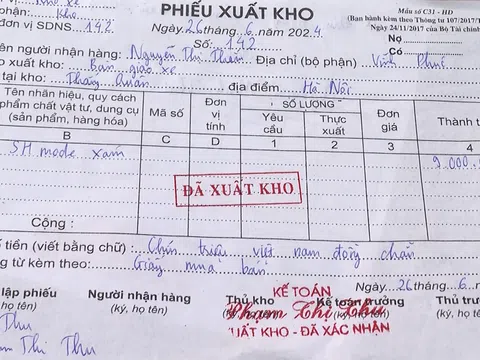 PHIẾU XUẤT KHO
Mẫu số C31 - HD
(Ban hành kèm theo Thông tư 107/2017/T
Ngày 24/11/2017 của Bộ Tài chính
phận: kho
đơn vị SDNS 142
Ngày 26 tháng 6 năm 2024
Số: 142
Nợ
Có
tên người nhận hàng: Nguyễn Thị Thiên Địa chỉ (bộ phận) Vĩnh Phú
do xuất kho: Bàn giao xe
tại kho: Thắng Quân địa điểm Hà Nội
Tên nhãn hiệu, quy cách
phẩm chất vật tư, dung cụ
(sản phẩm, hàng hóa)
Mã số
Đơn vị tính
SỐ LƯỢNG
Yêu cầu
Thực xuất
Đơn giá
Thành t
B C D 1 2 3 4
SH mode xám 9.000.
ĐÃ XUẤT KHO
Cộng :
tiền (viết bằng chữ) Chín triệu việt nam đồng chẵn
từ kèm theo: Giấy mua bán
26 tháng 6 n
lập phiếu
(ký, họ tên)
Người nhận hàng
(ký, họ tên)
Thủ kho
(ký, họ tên)
Kế toán trưởng
(ký, họ tên)
Thủ tr
(ký, họ
KẾ TOÁN
Phạm Thị Thu
XUẤT KHO - ĐÃ XÁC NHẬN
Thu
Thị Thu